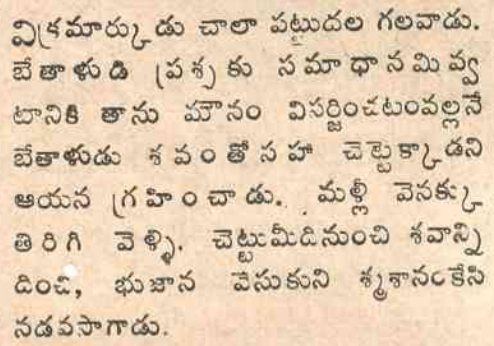 విక్రమార్కుడు చాలా పట్టుదల గలవాడు.
బేతాళుడి ప్రశ్నకు సమాధానమివ్వ
టానికి తాను మౌనం విసర్జించటంవల్లనే
బేతాళుడు శవంతోసహా చెట్టెక్కాడని
ఆయన గ్రహించాడు. మళ్లీ వెనక్కు
తిరిగి వెళ్ళి. చెట్టుమీదినుంచి శవాన్ని
దించి, భుజాన వేసుకుని శ్మశానంకేసి
నడవసాగాడు.